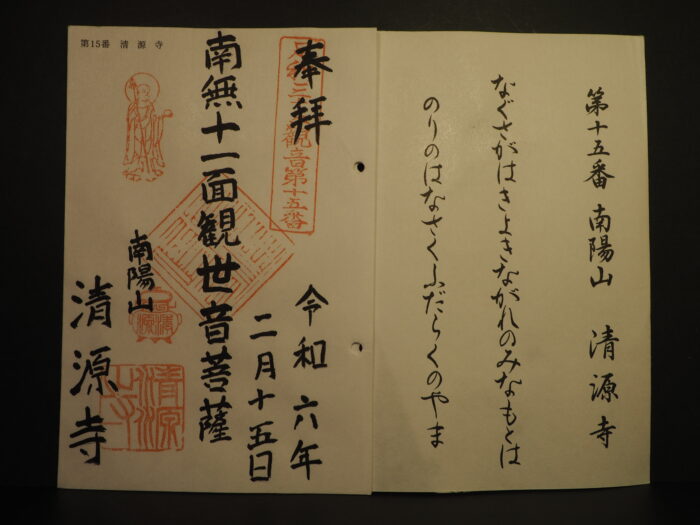 第十五番 南陽山 清源寺
なぐさがはきよきながれのみなもとは
のりのはなさくふだらくのやま
奉拝
令和六年
二月十五日
南無十一面観世音菩薩
南陽山
清源寺
第15番 清源寺
観音第十五番
清源